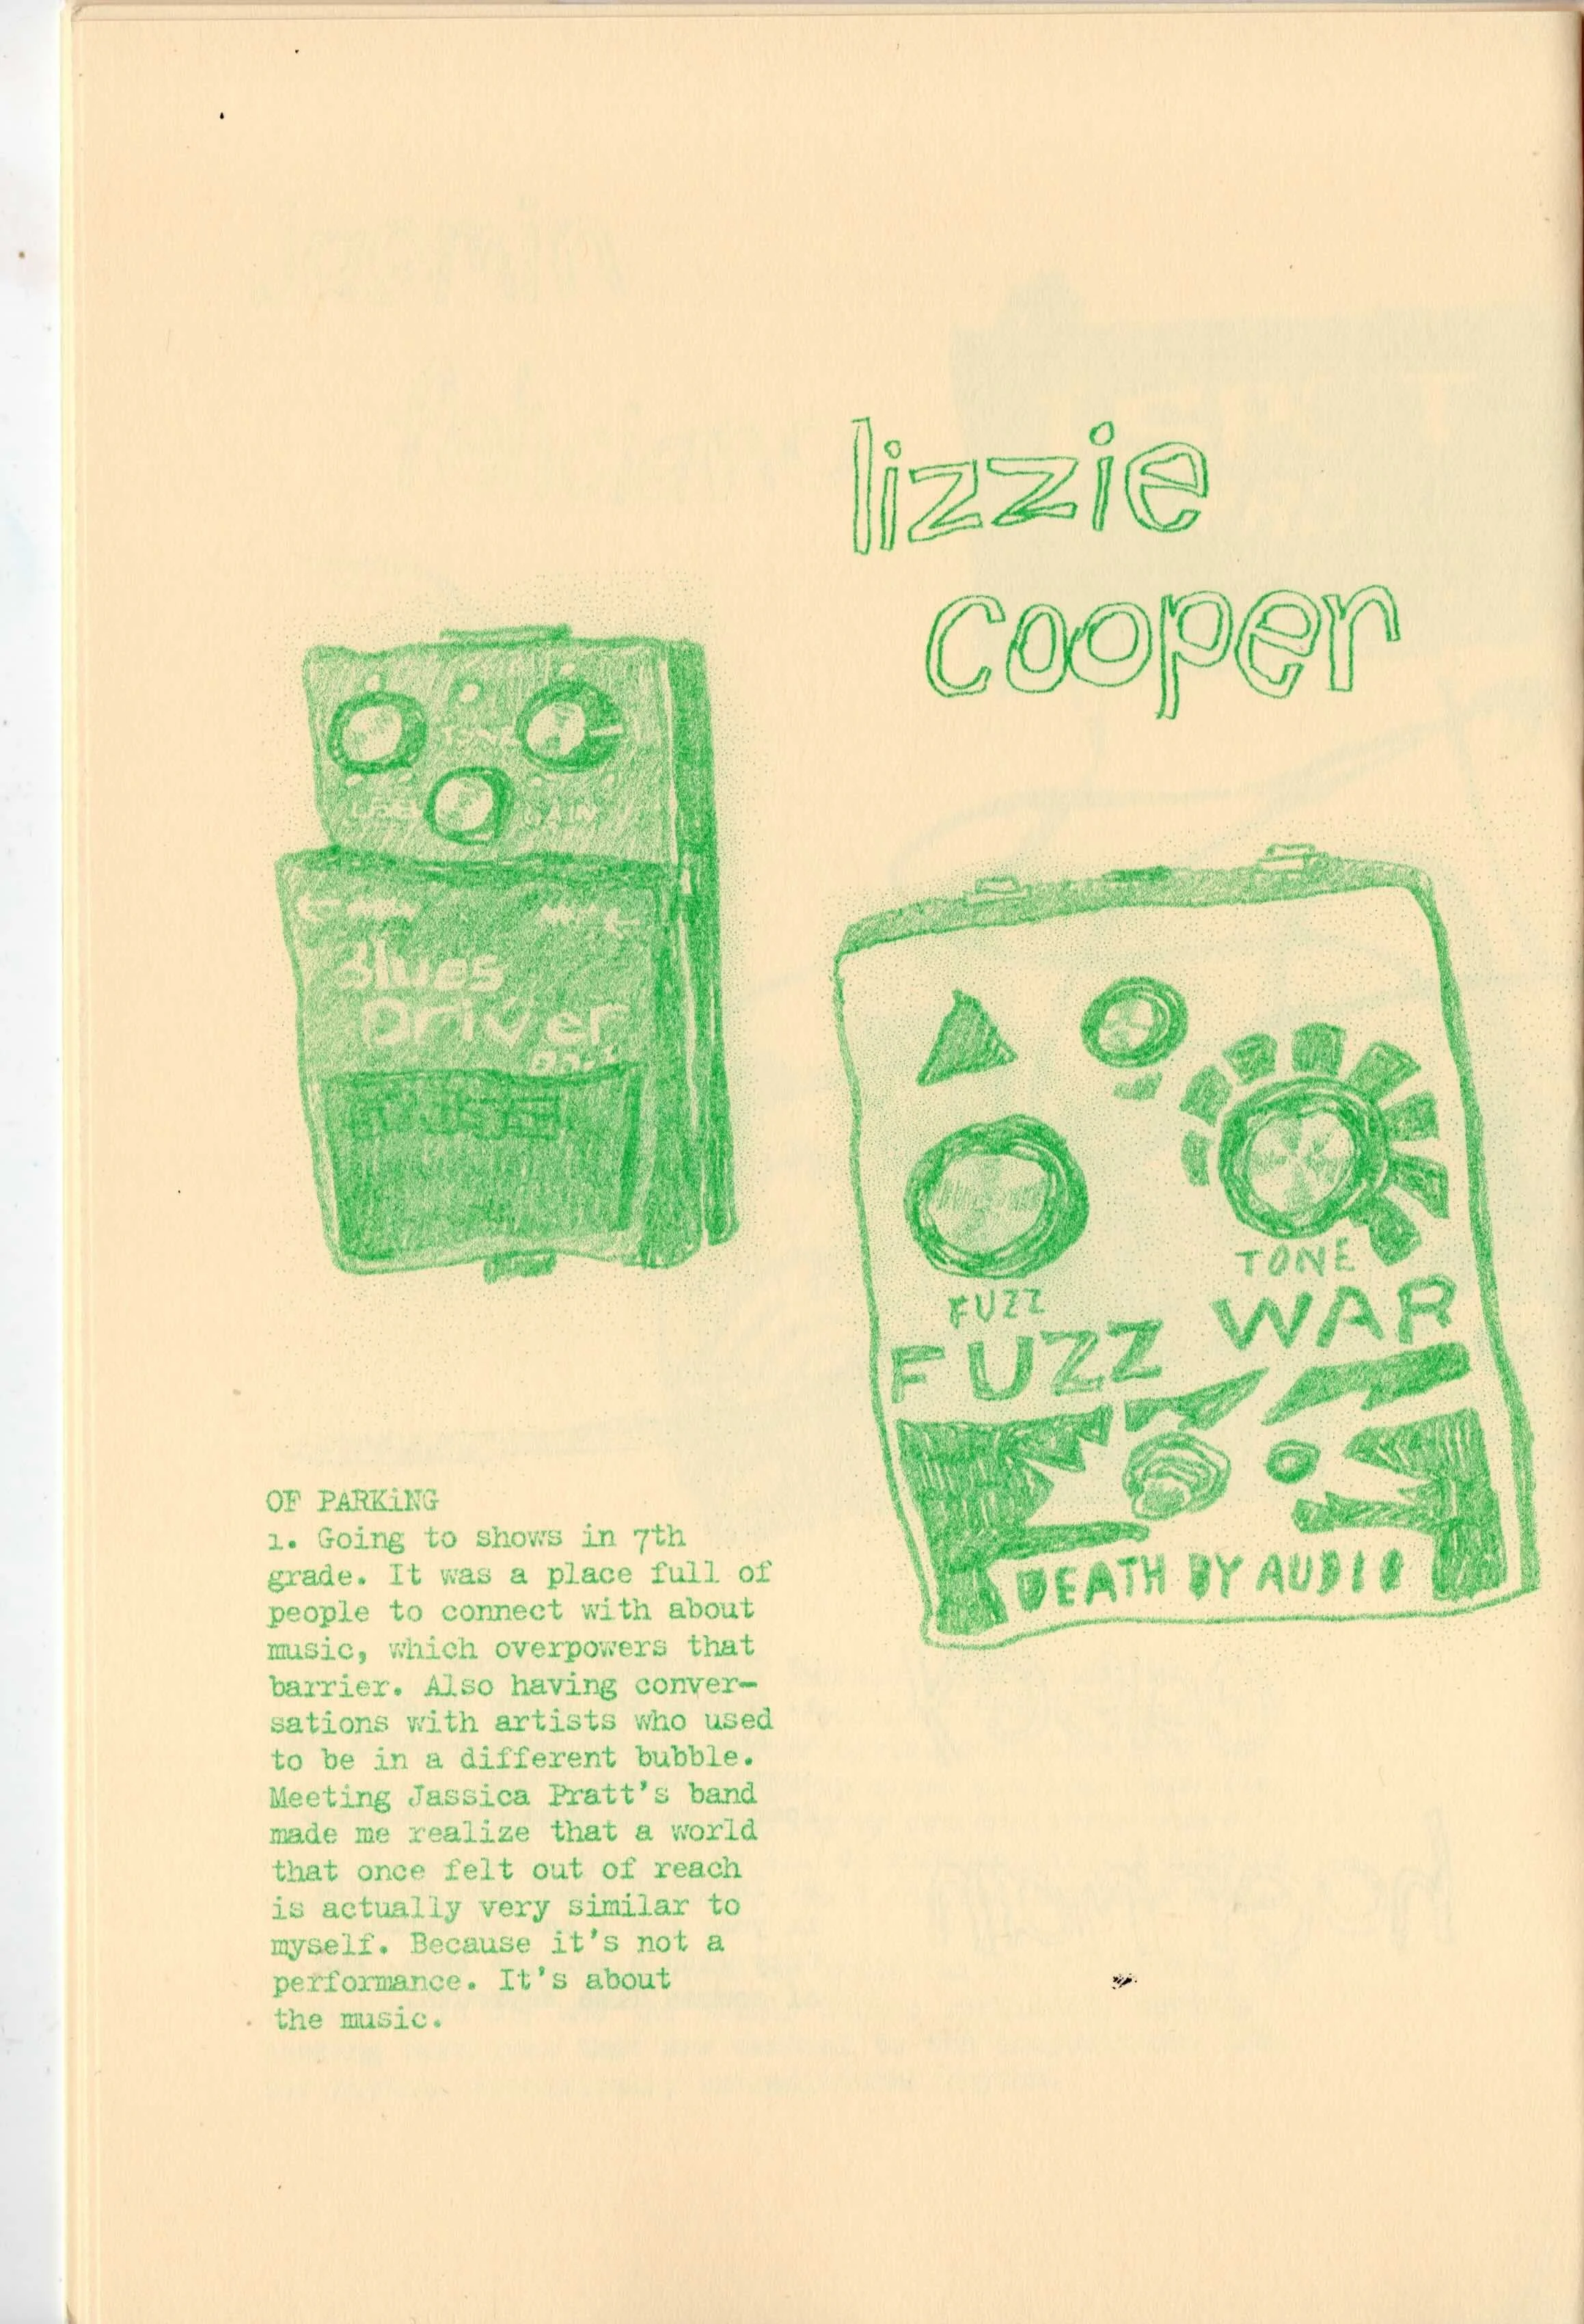 lizzie
cooper
TONE
LEVEL GAIN
Blues
Driver
BD-2
TONE
FUZZ
FUZZ WAR
DEATH BY AUDIO
OF PARKiNG
1. Going to shows in 7th
grade. It was a place full of
people to connect with about
music, which overpowers that
barrier. Also having conver-
sations with artists who used
to be in a different bubble.
Meeting Jassica Pratt's band
made me realize that a world
that once felt out of reach
is actually very similar to
myself. Because it's not a
performance. It's about
the music.